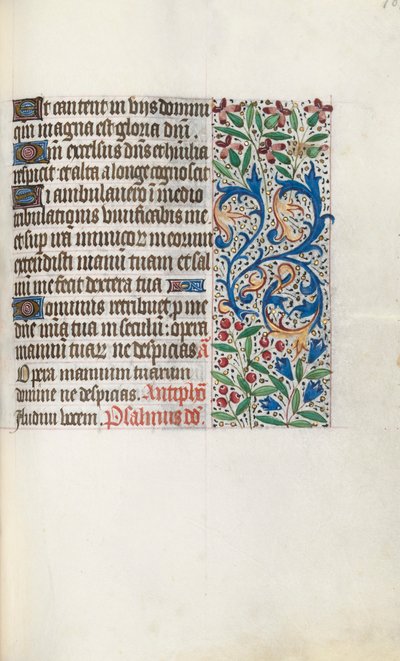 Et cantent in viis domini
qm̄ magna est gloria dn̄i.
Qm̄ excelsus dn̄s et humilia
respicit et alta a longe cognoscit
Si ambulavero in medio
tribulationis vivificabis me
et sup irā inimicor meorum
extendisti manū tuam et sal
uū me fecit dextera tua
Dominus retribuet p me
dn̄e mīa tua in seculū : opera
manuū tuar ne despicias a
Opera manuum tuarum
domine ne despicias. Antiphō
Audiui vocem Psalmus dd̄